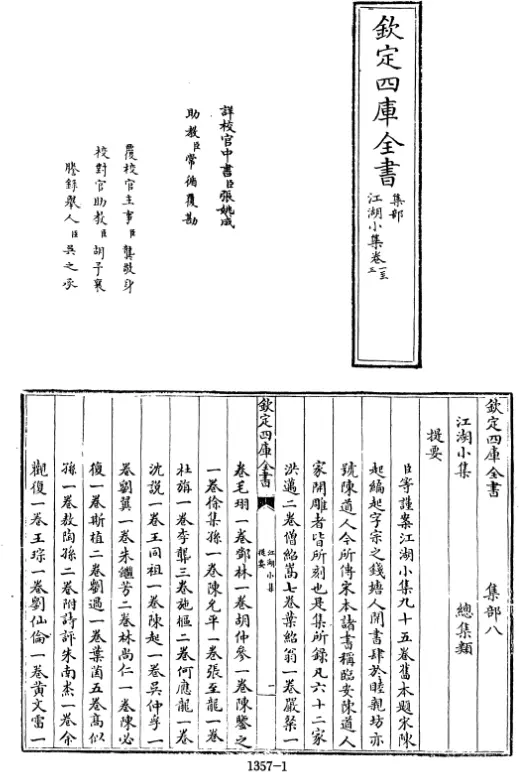 欽定四庫全書
集部
江湖小集卷一至
詳校官中書臣張姚成
助教臣常循覆勘
覆校官主事臣龔敬身
校對官助教臣胡子襄
謄錄舉人臣吳之承
欽定四庫全書 集部八
江湖小集 總集類
提要
臣等謹案江湖小集九十五卷舊本題宋陳
起編起字宗之錢塘人開書肆於睦親坊亦
號陳道人今所傳宋本諸書稱臨安陳道人
家開雕者皆所刻也是集所錄凡六十二家
洪邁二卷僧紹嵩七卷葉紹翁一卷嚴粲一
欽定四庫全書
江湖小集
提要
一
卷毛珝一卷鄧林一卷胡仲參一卷陳鑒之
一卷徐集孫一卷陳允平一卷張至龍一卷
杜旃一卷李龏三卷施樞二卷何應龍一卷
沈說一卷王同祖一卷陳起一卷吳仲孚一
卷劉翼一卷朱繼芳二卷林尚仁一卷陳必
復一卷斯植二卷劉過一卷葉茵五卷高似
孫一卷敖陶孫二卷附詩評朱南杰一卷余
觀復一卷王琮一卷劉仙倫一卷黃文雷一
1357-1